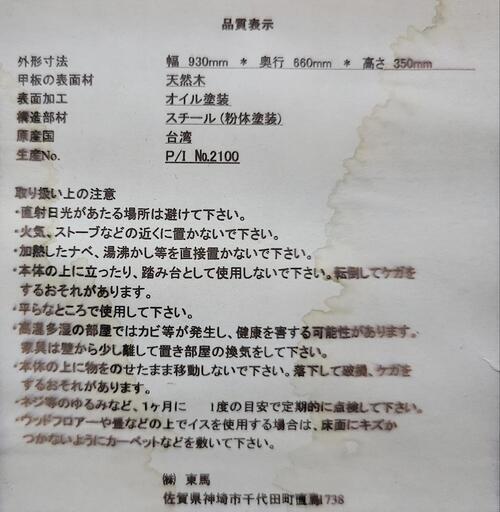 品質表示
外形寸法 幅 930mm * 奥行 660mm * 高さ 350mm
甲板の表面材 天然木
表面加工 オイル塗装
構造部材 スチール(粉体塗装)
原産国 台湾
生産No. P/I No.2100
取り扱い上の注意
・直射日光があたる場所は避けて下さい。
・火気、ストーブなどの近くに置かないで下さい。
・加熱したナベ、湯沸かし等を直接置かないで下さい。
・本体の上に立ったり、踏み台として使用しないで下さい。転倒してケガを
するおそれがあります。
・平らなところで使用して下さい。
・高温多湿の部屋ではカビ等が発生し、健康を害する可能性があります。
家具は壁から少し離して置き部屋の換気をして下さい。
・本体の上に物をのせたまま移動しないで下さい。落下して破損、ケガを
するおそれがあります。
・ネジ等のゆるみなど、1ヶ月に 1度の目安で定期的に点検して下さい。
・ウッドフロアーや畳などの上でイスを使用する場合は、床面にキズが
つかないようにカーペットなどを敷いて下さい。
㈱ 東馬
佐賀県神埼市千代田町直鳥1738